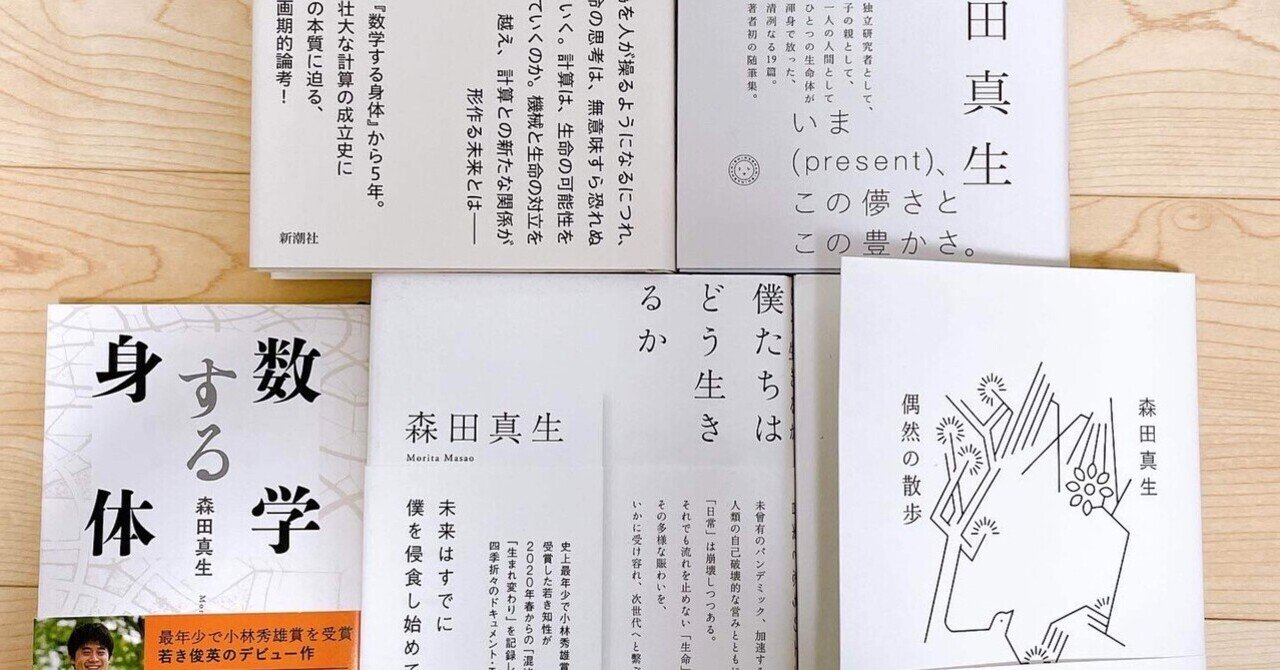 を人が操るようになるにつれ、
の思考は、無意味すら恐れぬ
いく。計算は、生命の可能性を
ていくのか。機械と生命の対立を
越え、計算との新たな関係が
形作る未来とは――
『数学する身体』から5年。
壮大な計算の成立史に
の本質に迫る、
画期的論考！
新潮社
田真生
独立研究者として、
子の親として、
一人の人間として
ひとつの生命体が
渾身で放った、
清冽なる19篇。
著者初の随筆集。
いま
(present)、
この儚さと
この豊かさ。
数学
する
身体
森田真生
最年少で小林秀雄賞を受賞
若き俊英のデビュー作
僕たちは
どう生き
るか
森田真生
Morita Masao
未来はすでに
僕を侵食し始めて
史上最年少で小林秀雄賞
受賞した若き知性が
2020年春からの「混
「生まれ変わり」を記録し
四季折々のドキュメント・
未曾有のパンデミック、加速する
人類の自己破壊的な営みとともに
「日常」は崩壊しつつある。
それでも流れを止めない「生命」
その多様な賑わいを、
いかに受け容れ、次世代へと繋
森田真生
偶然の散歩